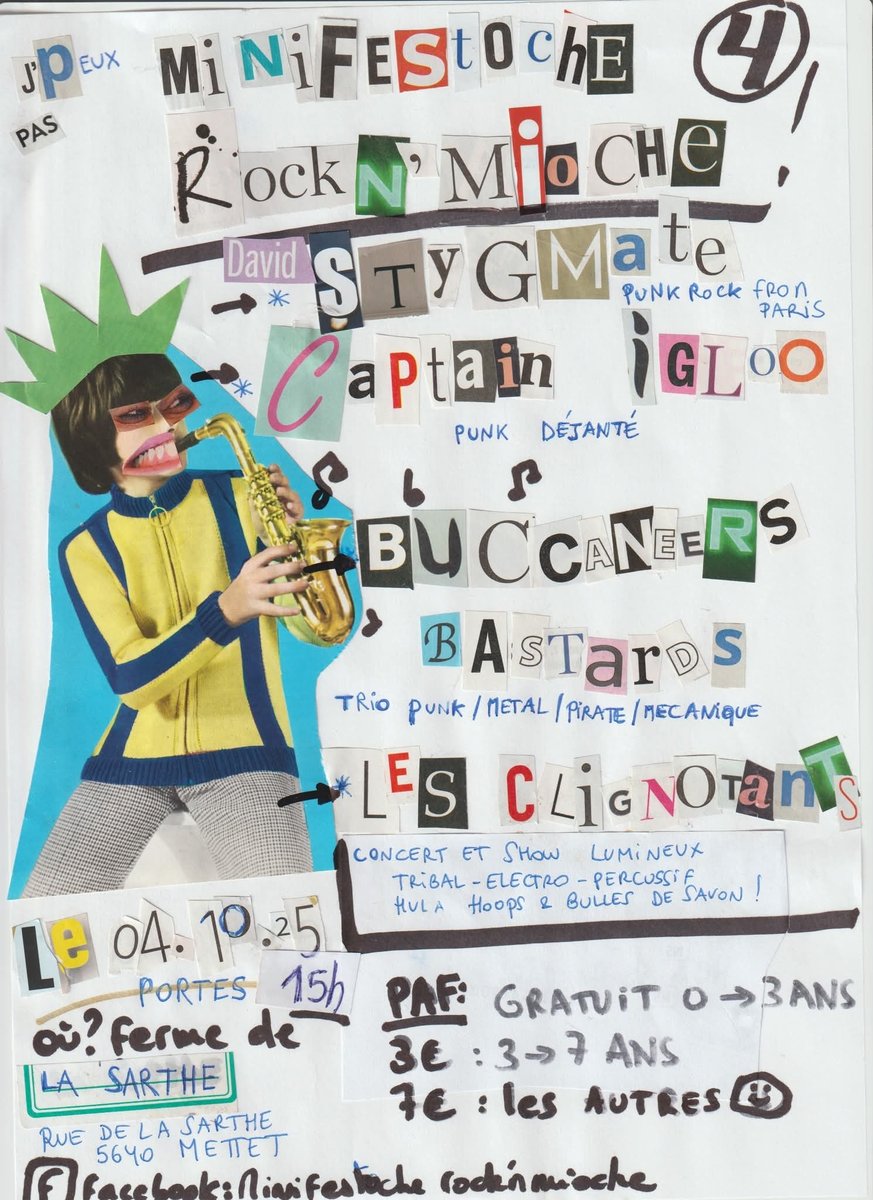 J'PEUX PAS
MiNiFESTOCHE
4!
ROCK N' MiOCHE!
David STYGMate
PUNK ROCK FROM PARIS
Captain iGLOO
PUNK DÉJANTÉ
BUCCANEERS
BASTARDS
TRIO PUNK/METAL/PIRATE/MECANIQUE
LES CLiGNOTantS
CONCERT ET SHOW LUMINEUX
TRIBAL-ELECTRO-PERCUSSIF
HULA HOOPS & BULLES DE SAVON!
Le 04.10.25
PORTES 15h
où? ferme de
LA SARTHE
RUE DE LA SARTHE
5640 METTET
PAF: GRATUIT 0→3 ANS
3€ : 3→7 ANS
7€ : les AUTRES
f facebook: Minifestoche rock'n mioche